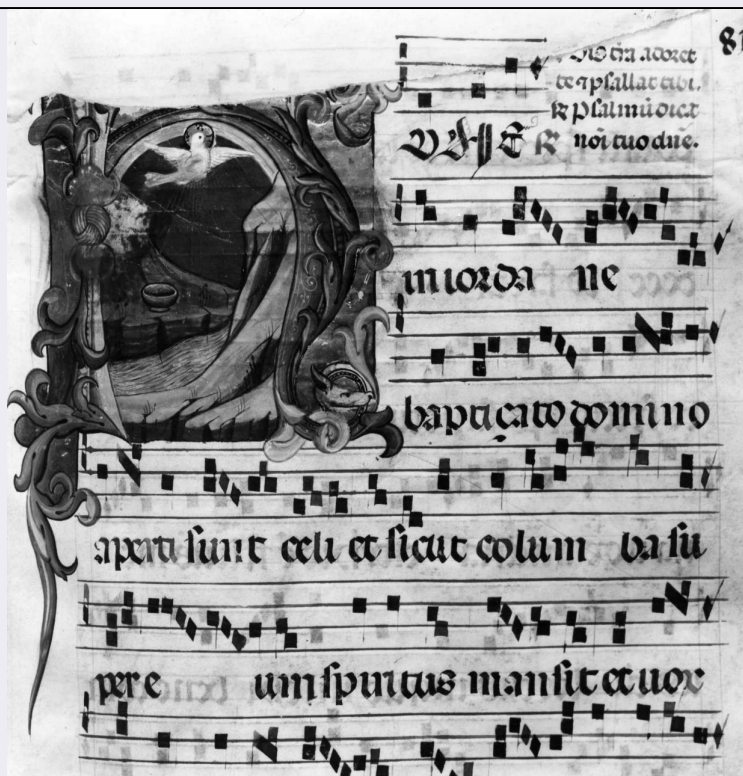 81
terra adoret
te et psallat tibi.
℟ psalmū dicat
noī tuo dn̄e.
in iorda ne
baptiçato domino
aperti sunt celi et sicut colum ba su
per e um spiritus mansit et uox